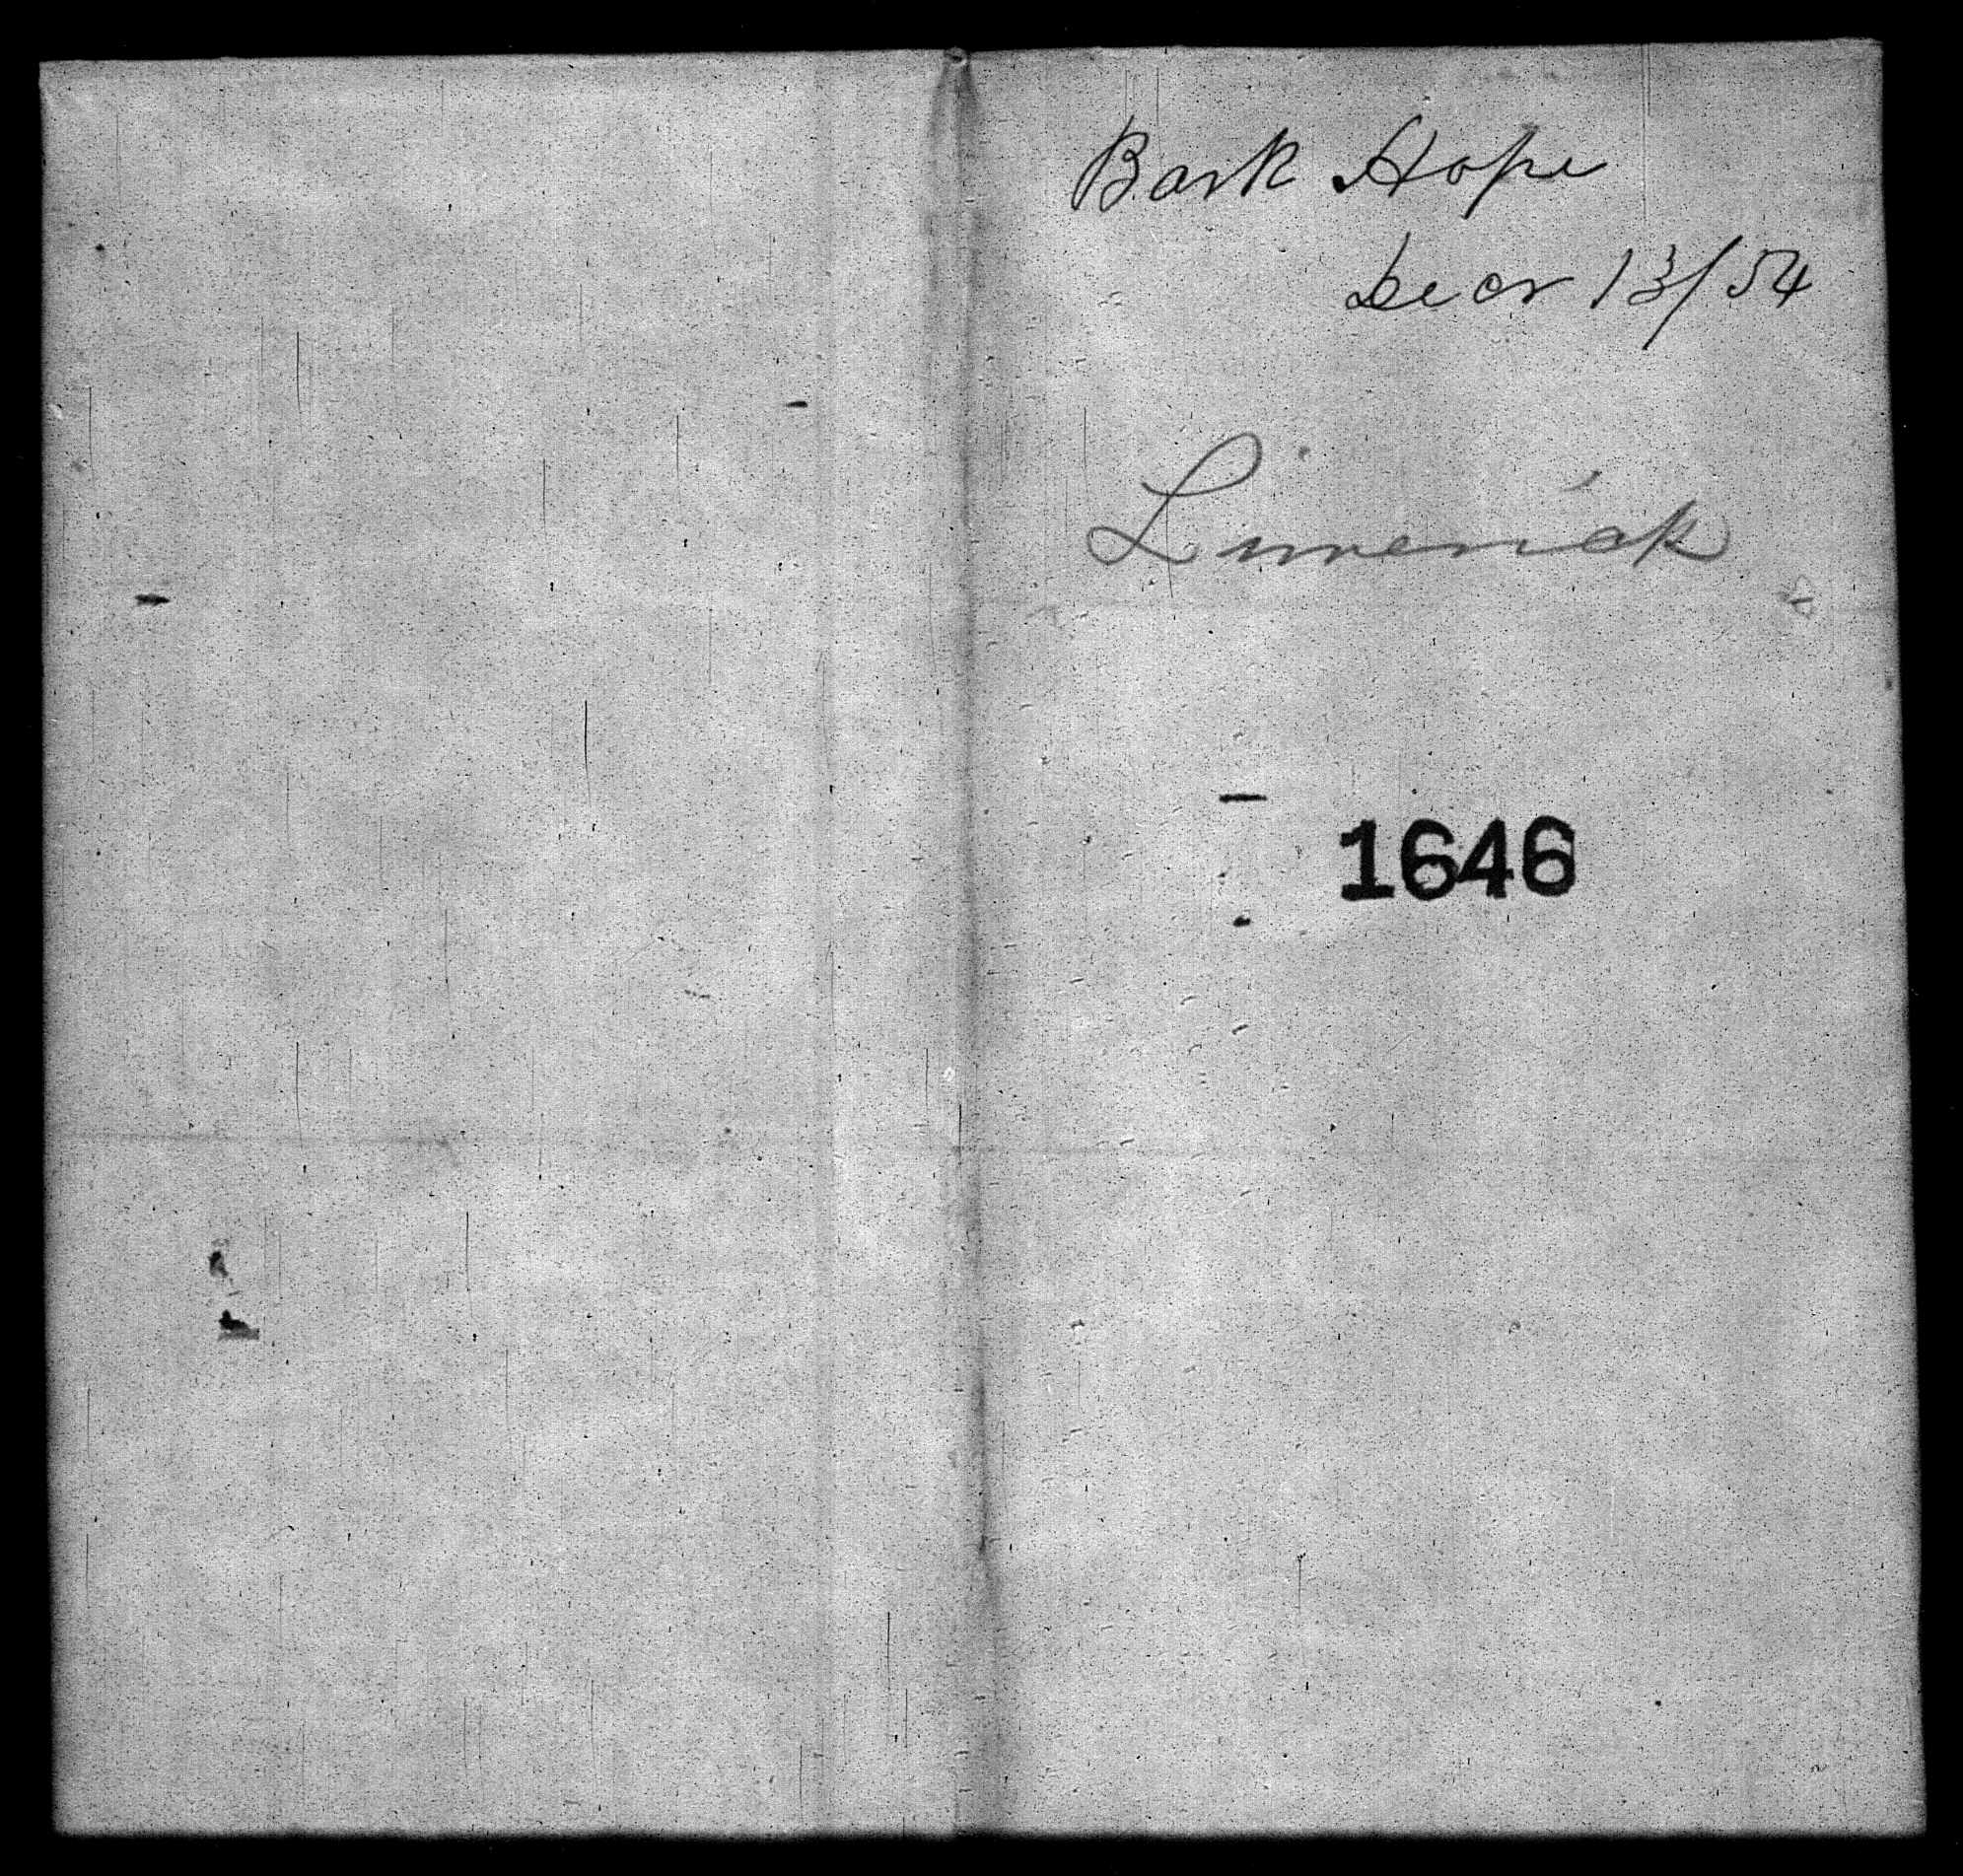 Bark Hope
Decr 13/54
Limerick
1646